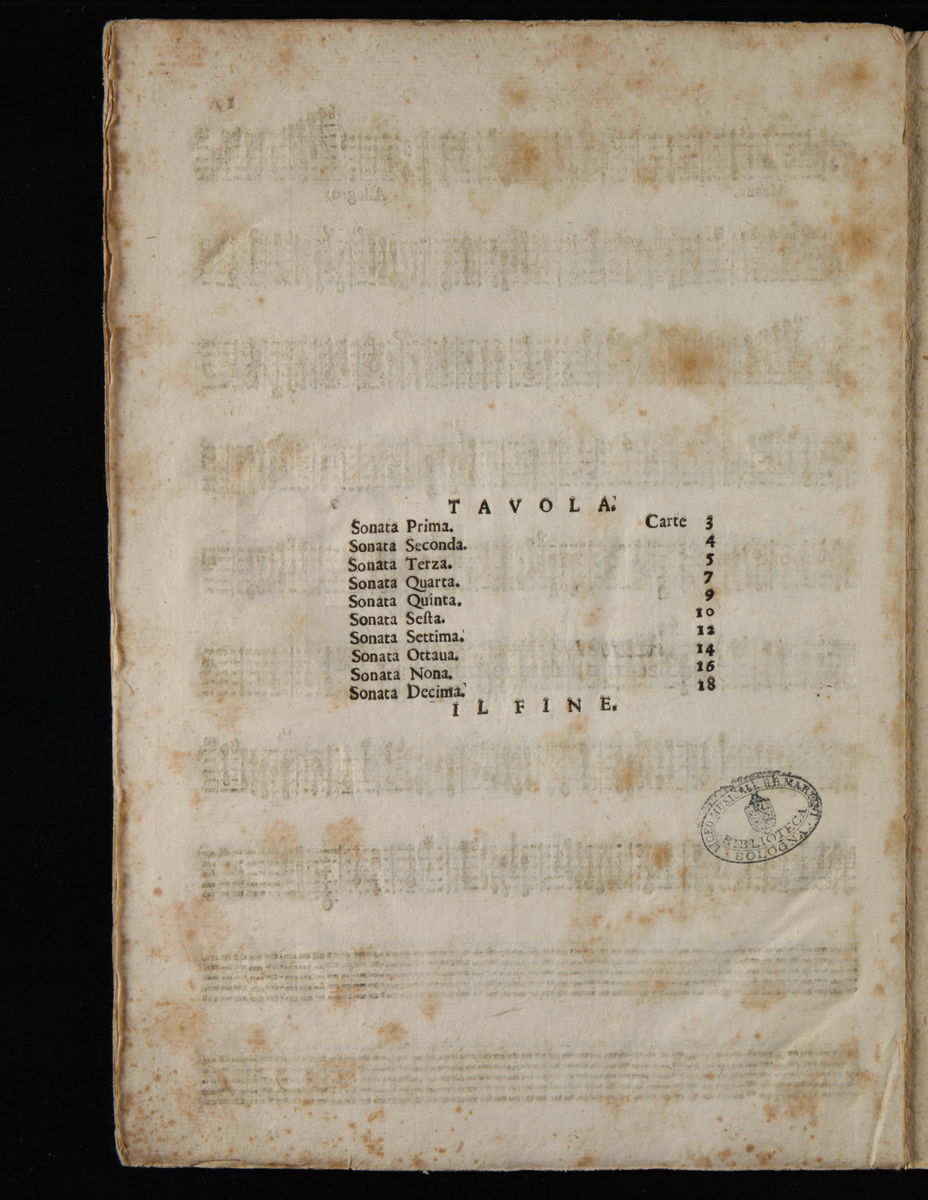 TAVOLA.
Sonata Prima. Carte 3
Sonata Seconda. 4
Sonata Terza. 5
Sonata Quarta. 7
Sonata Quinta. 9
Sonata Seſta. 10
Sonata Settima. 12
Sonata Ottaua. 14
Sonata Nona. 16
Sonata Decima. 18
IL FINE.
LICEO MUSICALE G.B. MARTINI
BIBLIOTECA
BOLOGNA